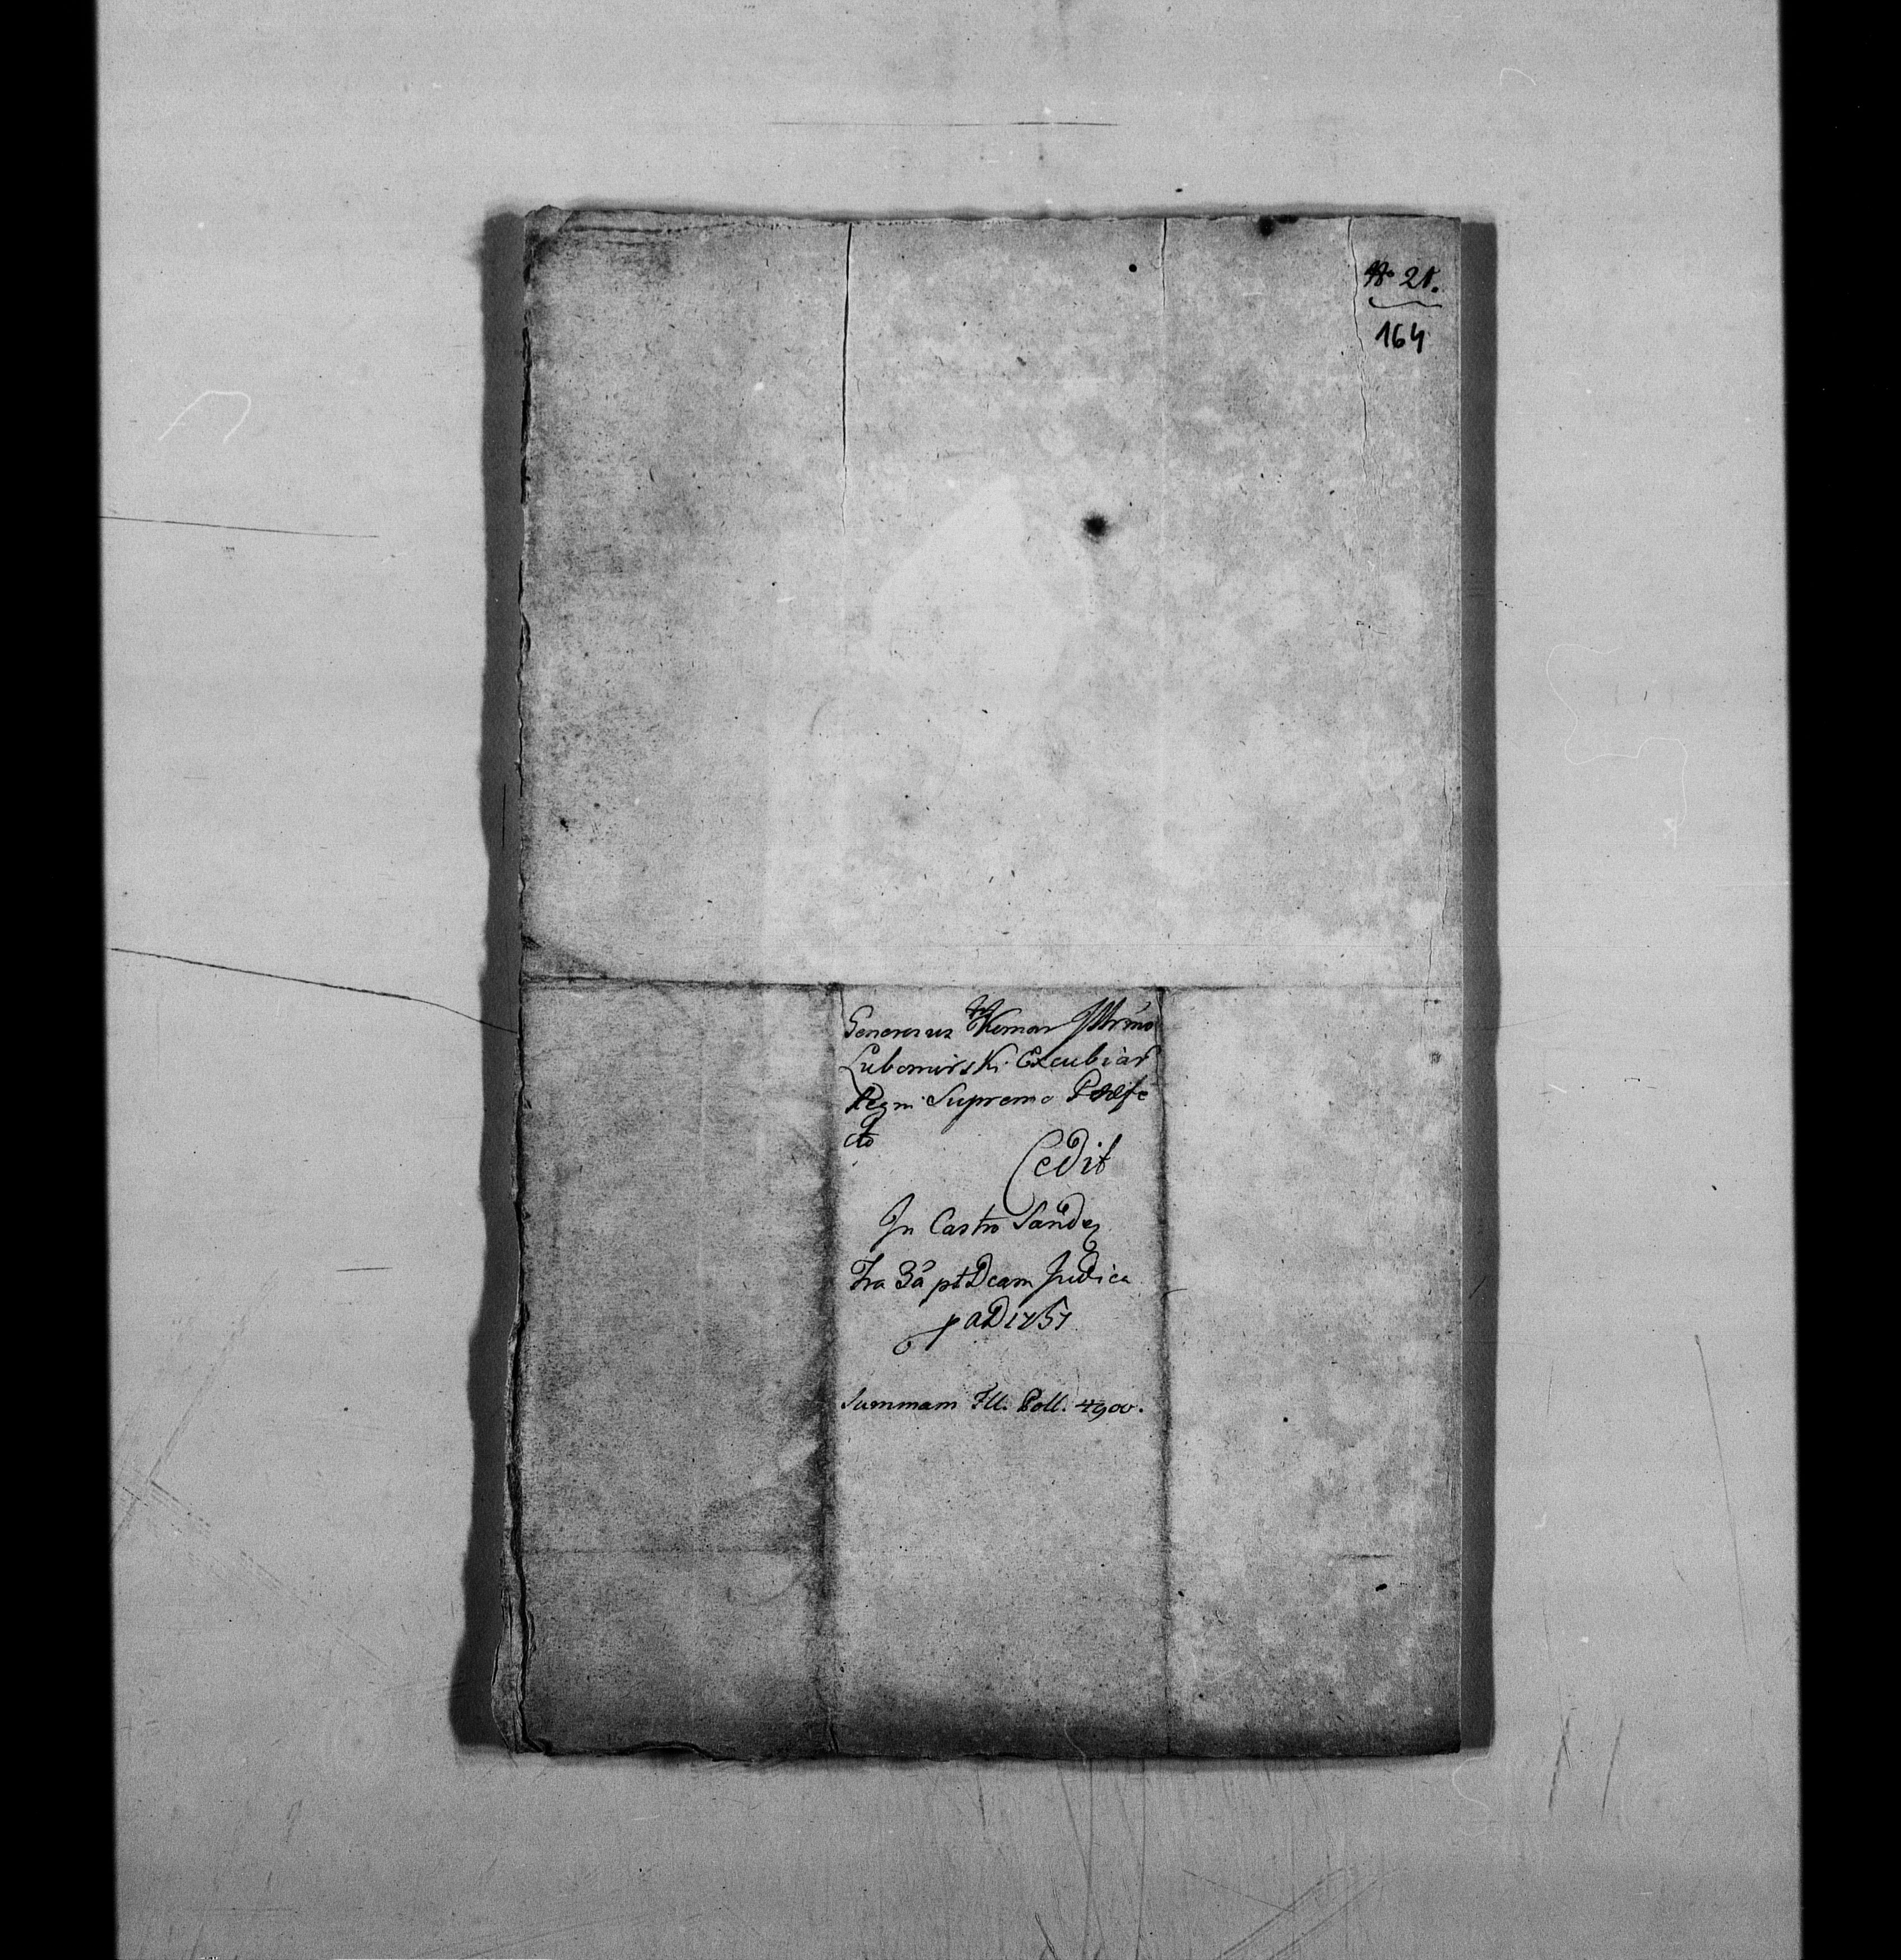 No 21.
164
Generosus Komar Illrmo
Lubomirski Excubiar
Regni Supremo Praefe
cto
Cedit
In Castro Sandec
Fra 3a pt Dcam Judica
p AD 1757
Summam Fll. Poll. 4900.